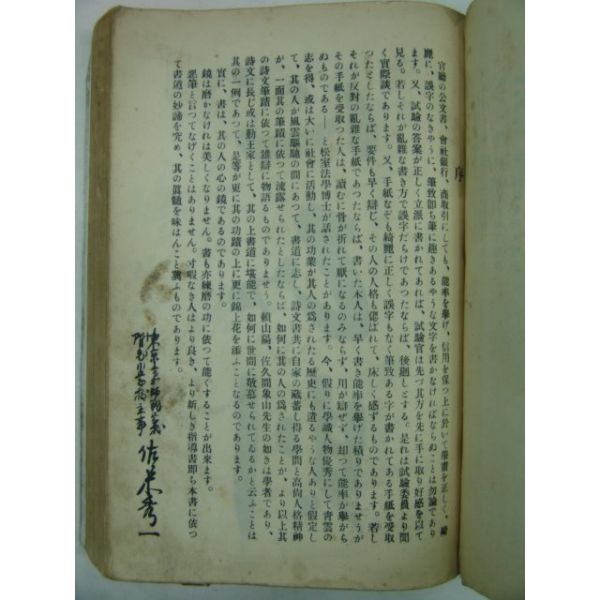 序
官廳の公文書、會社銀行、商取引にしても、能率を擧げ、信用を保つ上に於いて筆畫を正しく、綺
麗に、誤字のなきやうに、筆致即ち筆に趣きあるやうな文字を書かなければならぬことは勿論であり
ます。又、試驗の答案が正しく立派に書かれてあれば、試驗官は先づ其方を先に手に取り好感を以て
見る。若しそれが亂雜な書き方で誤字だらけであつたならば、後廻しとする。是れは試驗委員より聞
く實際談であります。又、手紙なぞも綺麗に正しく誤字もなく筆致ある字が書かれてある手紙を受取
つたとしたならば、要件も早く辯じ、その人の人格も偲ばれて、床しく感ずるものであります。若し
それが反對の亂雜な手紙であつたならば、書いた本人は、早く書き能率を擧げた積りでありませうが
その手紙を受取つた人は、讀むに骨が折れて厭になるのみならず、用が辯ぜず、却つて能率が擧がら
ぬものである――と松室法學博士が話されたことがあります。今、假りに學識人物優秀にして靑雲の
志を得、或は大いに社會に活動し、其の功業が其人の爲されたる歷史にも遺るやうな人ありと假定し
て、其の人が風雲驅馳の間にあつて、書道に志し、詩文書共に自家の蔵蓄し得る學問と高尙人格精神
が、一面其の筆蹟に依つて流露せられたとしたならば、如何に其の人の爲されたことが、より以上其
の詩文筆蹟に依つて雄辯に物語るものでありませう。賴山陽、佐久間象山先生の如きは學者であり、
詩文に長じ或は勤王家として、其の上書道に堪能で、如何に世間に敬慕せられてゐるかと云ふことは
其の一例であつて、是等が更に其の功蹟の上に更に錦上花を添ふことなるのであります。
實に、書は、其の人の心の鏡であるのであります。
鏡は磨かなければ美しくなりません。書も亦練磨の功に依つて能くすることが出來ます。
惡筆と言つてなげくことはありません。寸暇なき人はより良き、より新しき指導書卽ち本書に依つ
て書道の妙諦を究め、其の眞髓を味はんこと冀ふものであります。
東京
主事
佐
秀一